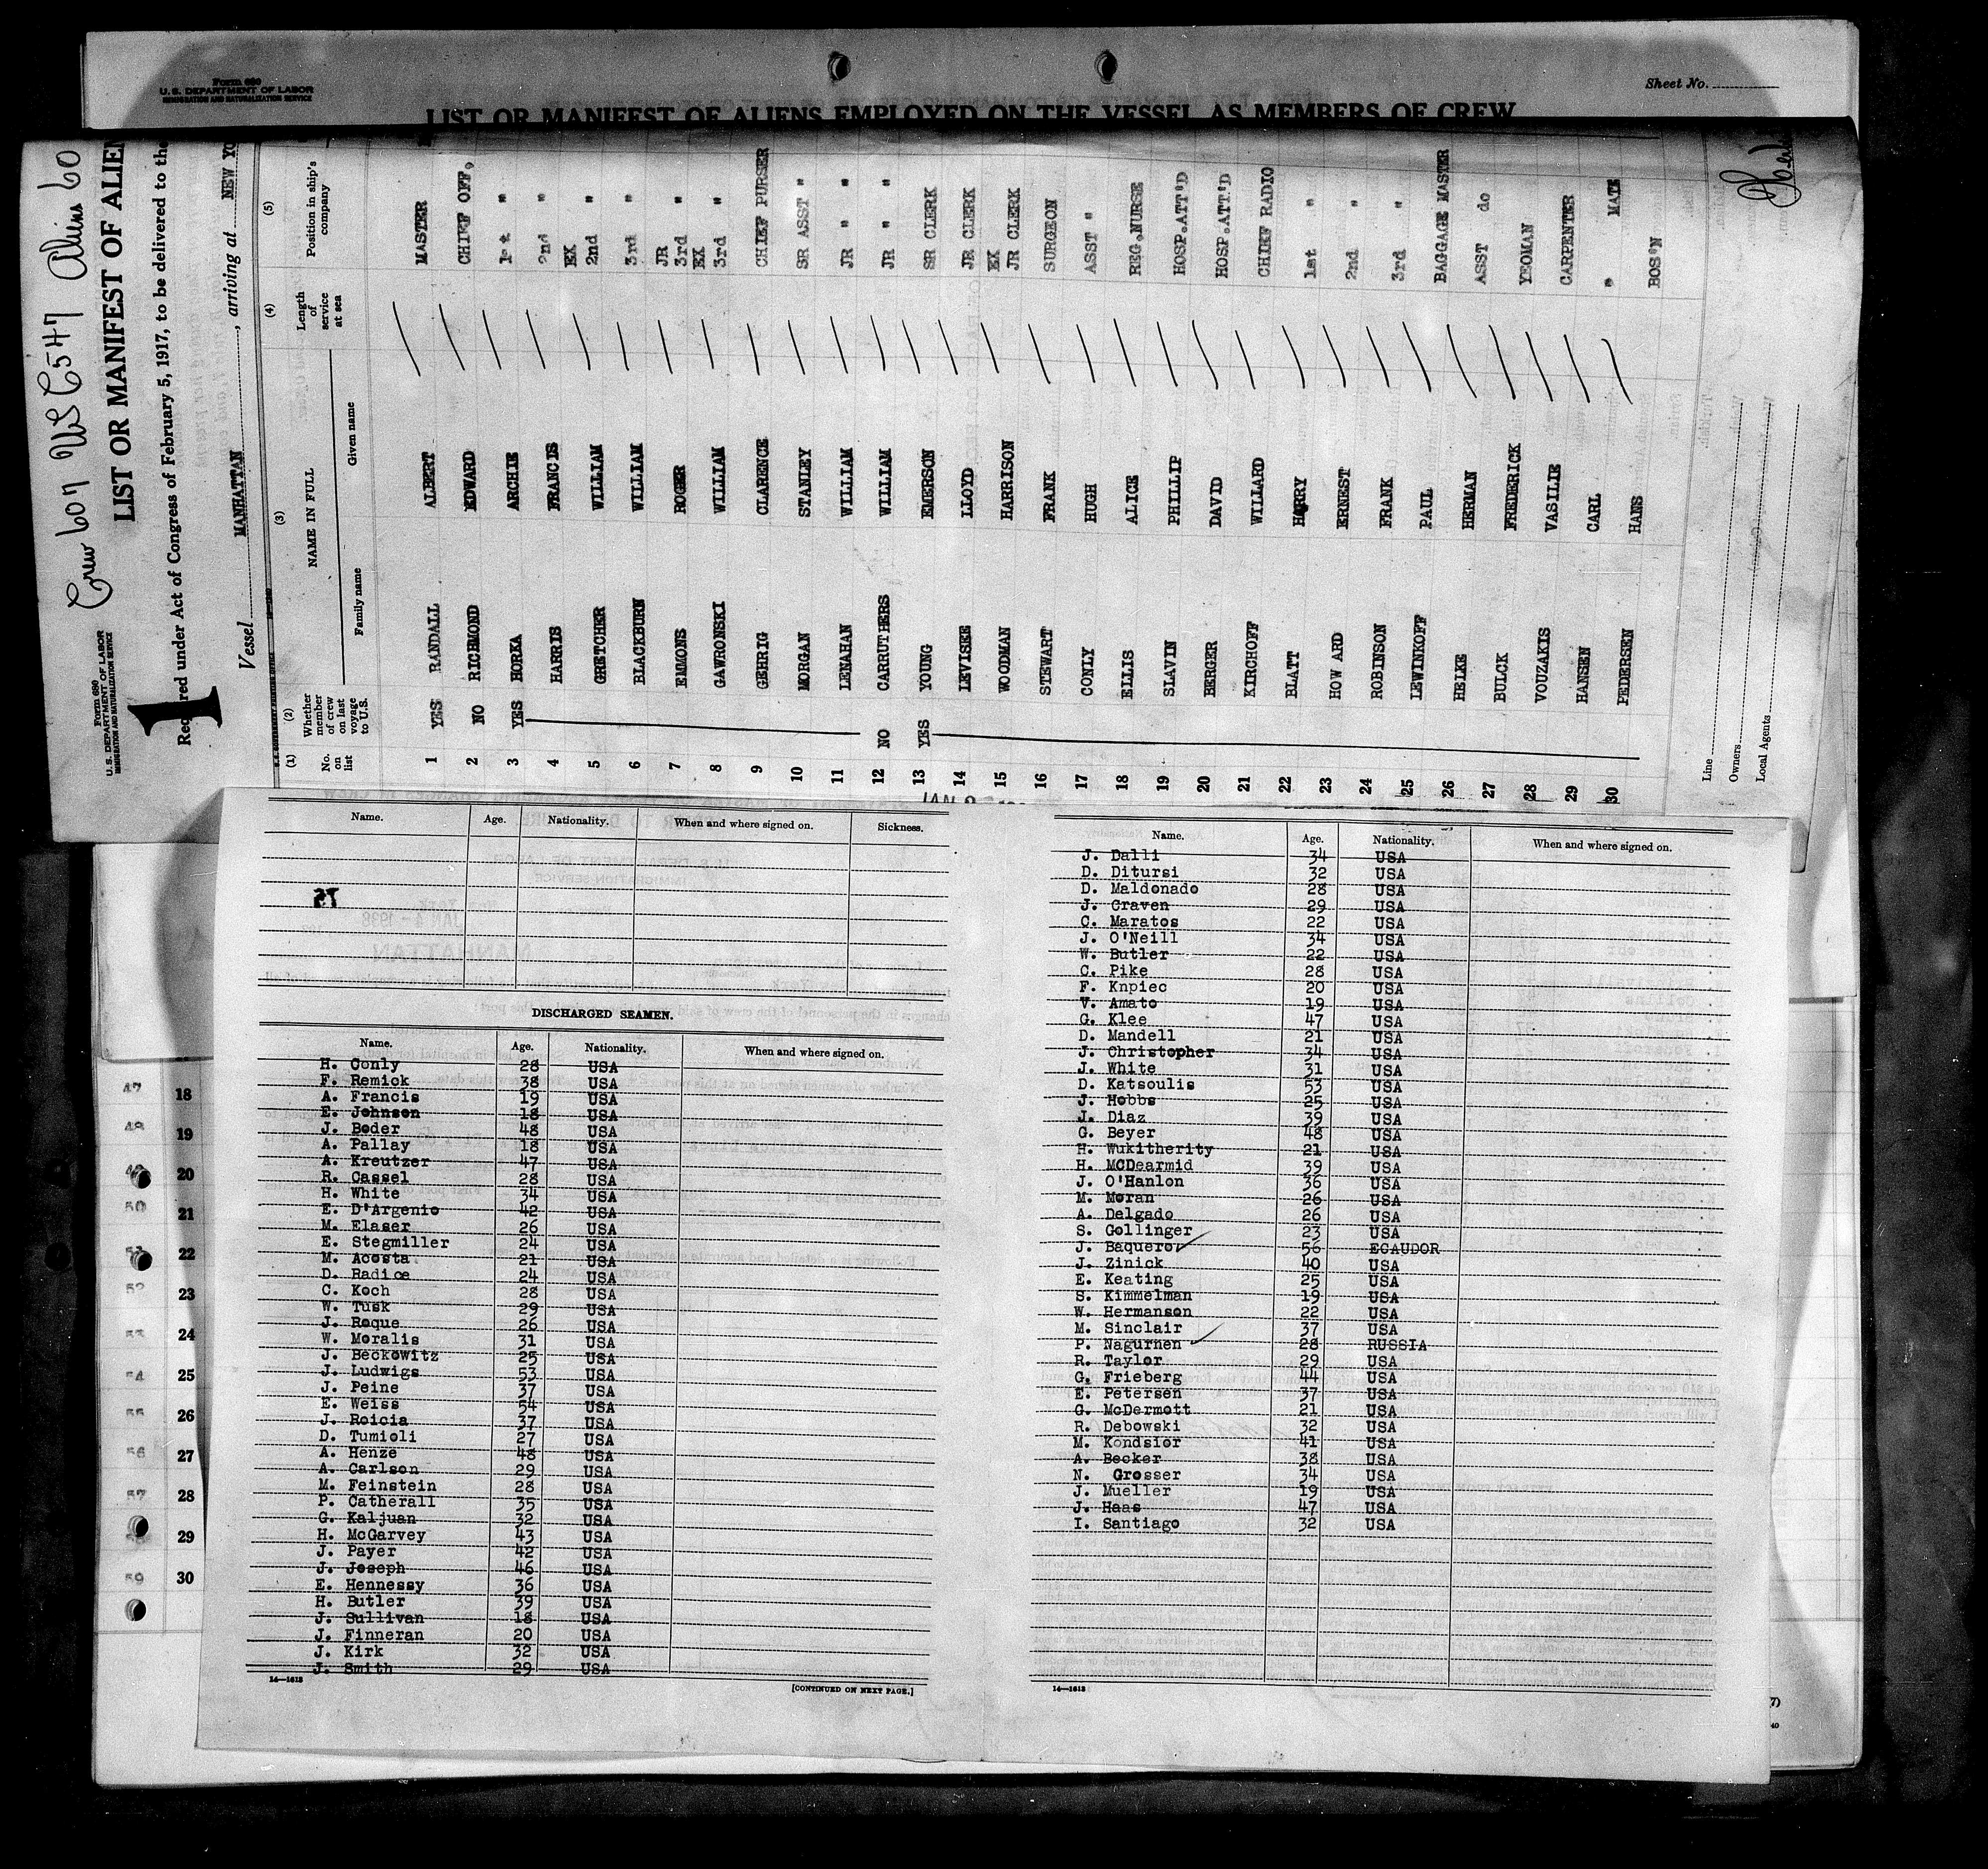 Form 680
U. S. DEPARTMENT OF LABOR
IMMIGRATION AND NATURALIZATION SERVICE
Sheet No.
LIST OR MANIFEST OF ALIENS EMPLOYED ON THE VESSEL AS MEMBERS OF CREW
Crew 607 US C 547 Aliens 60
Form 680
U. S. DEPARTMENT OF LABOR
IMMIGRATION AND NATURALIZATION SERVICE
LIST OR MANIFEST OF ALIEN
1
Required under Act of Congress of February 5, 1917, to be delivered to the
Vessel MANHATTAN, arriving at NEW YO
(1) (2) (3) (4) (5)
No. on list Whether member of crew on last voyage to U.S. NAME IN FULL Family name Given name Length of service at sea Position in ship's company
1 YES RANDALL ALBERT MASTER
2 NO RICHMOND EDWARD CHIEF OFF,
3 YES HORKA ARCHIE 1st "
4 HARRIS FRANCIS 2nd "
5 GRETCHER WILLIAM EX 2nd "
6 BLACKBURN WILLIAM 3rd "
7 EMMONS ROGER JR 3rd "
8 GAWRONSKI WILLIAM EX 3rd "
9 GEHRIG CLARENCE CHIEF PURSER
10 MORGAN STANLEY SR ASST "
11 LENAHAN WILLIAM JR " "
12 NO CARRUTHERS WILLIAM JR " "
13 YES YOUNG EMERSON SR CLERK
14 LEVISEE LLOYD JR CLERK
15 WOODMAN HARRISON EX JR CLERK
16 STEWART FRANK SURGEON
17 CONLY HUGH ASST "
18 ELLIS ALICE REG.NURSE
19 SLAVIN PHILLIP HOSP.ATT'D
20 BERGER DAVID HOSP.ATT'D
21 KIRCHOFF WILLARD CHIEF RADIO
22 BLATT HARRY 1st "
23 HOWARD ERNEST 2nd "
24 ROBINSON FRANK 3rd "
25 LEWINKOFF PAUL BAGGAGE MASTER
26 HEIKE HERMAN ASST do
27 BULCK FREDERICK YEOMAN
28 VOUZAKIS VASILIE CARPENTER
29 HANSEN CARL " MATE
30 PEDERSEN HANS BOS'N
Line
Owners
Local Agents
Name. Age. Nationality. When and where signed on. Sickness.
75
DISCHARGED SEAMEN.
Name. Age. Nationality. When and where signed on.
H. Conly 28 USA
F. Remick 38 USA
A. Francis 19 USA
E. Johnson 18 USA
J. Boder 48 USA
A. Pallay 18 USA
A. Kreutzer 47 USA
R. Cassel 28 USA
H. White 34 USA
E. D'Argenio 42 USA
M. Elaser 26 USA
E. Stegmiller 24 USA
M. Acosta 21 USA
D. Radice 24 USA
C. Koch 28 USA
W. Tusk 29 USA
J. Roque 26 USA
W. Moralis 31 USA
J. Beckowitz 25 USA
J. Ludwigs 53 USA
J. Peine 37 USA
E. Weiss 54 USA
J. Roicia 37 USA
D. Tumioli 27 USA
A. Henze 48 USA
A. Carlson 29 USA
M. Feinstein 28 USA
P. Catherall 35 USA
G. Kaljuan 32 USA
H. McGarvey 43 USA
J. Payer 42 USA
J. Joseph 46 USA
E. Hennessy 36 USA
H. Butler 39 USA
J. Sullivan 18 USA
J. Finneran 20 USA
J. Kirk 32 USA
J. Smith 29 USA
14—1613 [CONTINUED ON NEXT PAGE.]
Name. Age. Nationality. When and where signed on.
J. Dalli 34 USA
D. Ditursi 32 USA
D. Maldonado 28 USA
J. Craven 29 USA
C. Maratos 22 USA
J. O'Neill 34 USA
W. Butler 22 USA
C. Pike 28 USA
F. Knpiec 20 USA
V. Amato 19 USA
G. Klee 47 USA
D. Mandell 21 USA
J. Christopher 34 USA
J. White 31 USA
D. Katsoulis 53 USA
J. Hobbs 25 USA
J. Diaz 39 USA
G. Beyer 48 USA
H. Wukitherity 21 USA
H. MCDearmid 39 USA
J. O'Hanlon 36 USA
M. Moran 26 USA
A. Delgado 26 USA
S. Gollinger 23 USA
J. Baquero 56 ECAUDOR
J. Zinick 40 USA
E. Keating 25 USA
S. Kimmelman 19 USA
W. Hermanson 22 USA
M. Sinclair 37 USA
P. Nagurnen 28 RUSSIA
R. Taylor 29 USA
G. Frieberg 44 USA
E. Petersen 37 USA
G. McDermott 21 USA
R. Debowski 32 USA
M. Kondsior 41 USA
A. Becker 38 USA
N. Grosser 34 USA
J. Mueller 19 USA
J. Haas 47 USA
I. Santiago 32 USA
14—1613
47 18
48 19
49 20
50 21
51 22
52 23
53 24
54 25
55 26
56 27
57 28
29
59 30